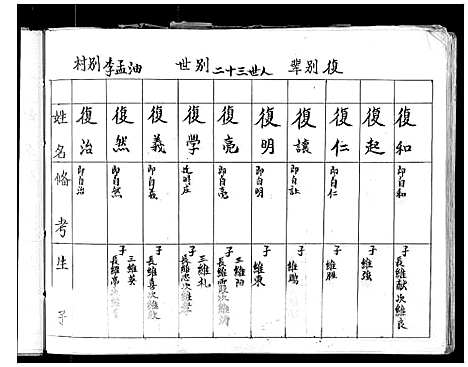 輩別復
世別二十三世人
村別李孟油
復和
復起
復仁
復讓
復明
復亮
復學
復義
復然
復治
姓名
即自和
即自仁
即自让
即自明
即自亮
即自義
即自然
即自治
備考
子 長維献次維良
子 維強
子 維雁
子 維鵬
子 維東
子 長維霞次維清三維陽
子 長維忠次維孝三維礼
子 長維喜次維
子 長維亮次維三維英
生子